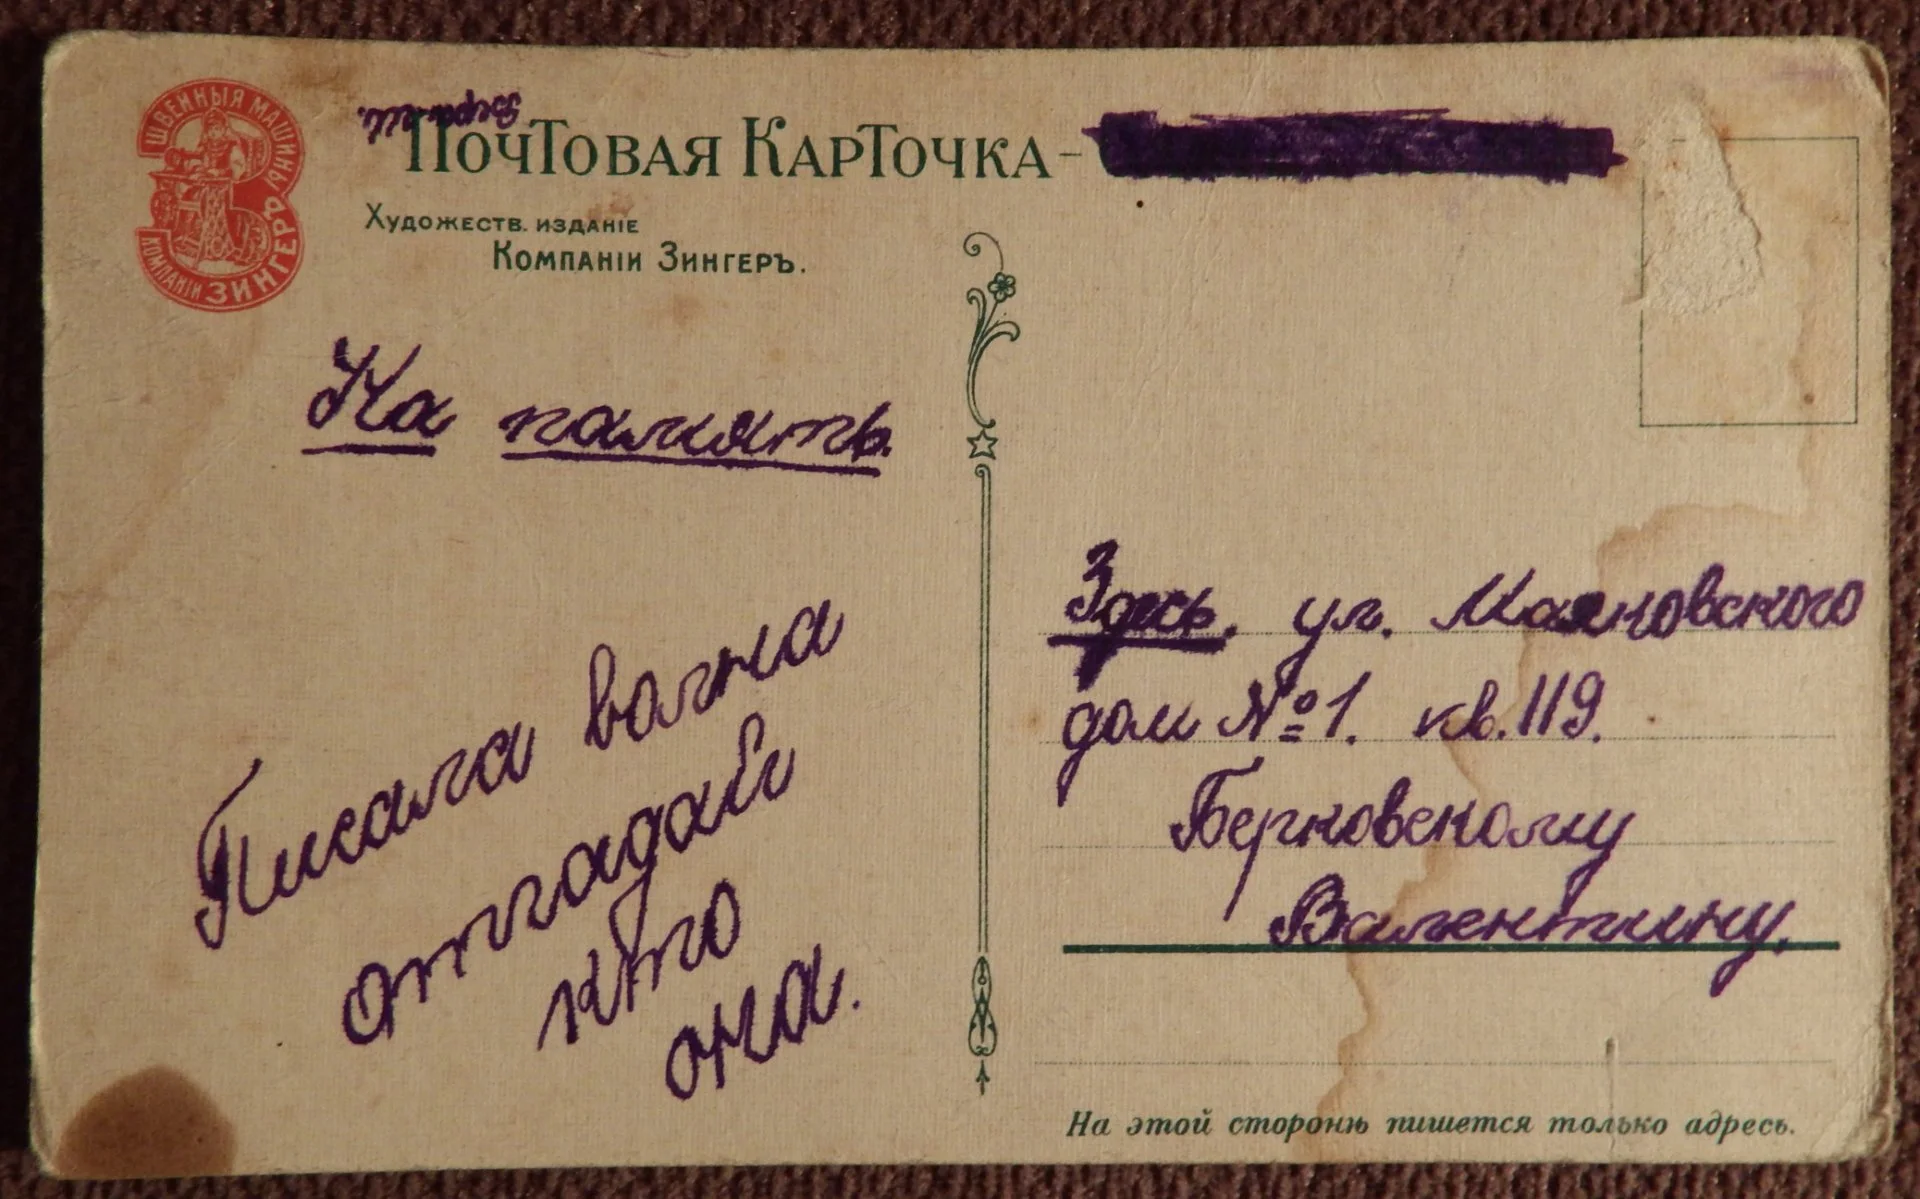 ШВЕЙНЫЯ МАШИНЫ
КОМПАНІИ ЗИНГЕРЪ
ПОЧТОВАЯ КАРТОЧКА–
ХУДОЖЕСТВ. ИЗДАНІЕ
КОМПАНІИ ЗИНГЕРЪ.
На память.
Писала волна
отгадай
кто
она.
Здесь. ул. Маяковского
дом №1. кв. 119.
Берновскому
Валентину.
На этой сторонѣ пишется только адресъ.